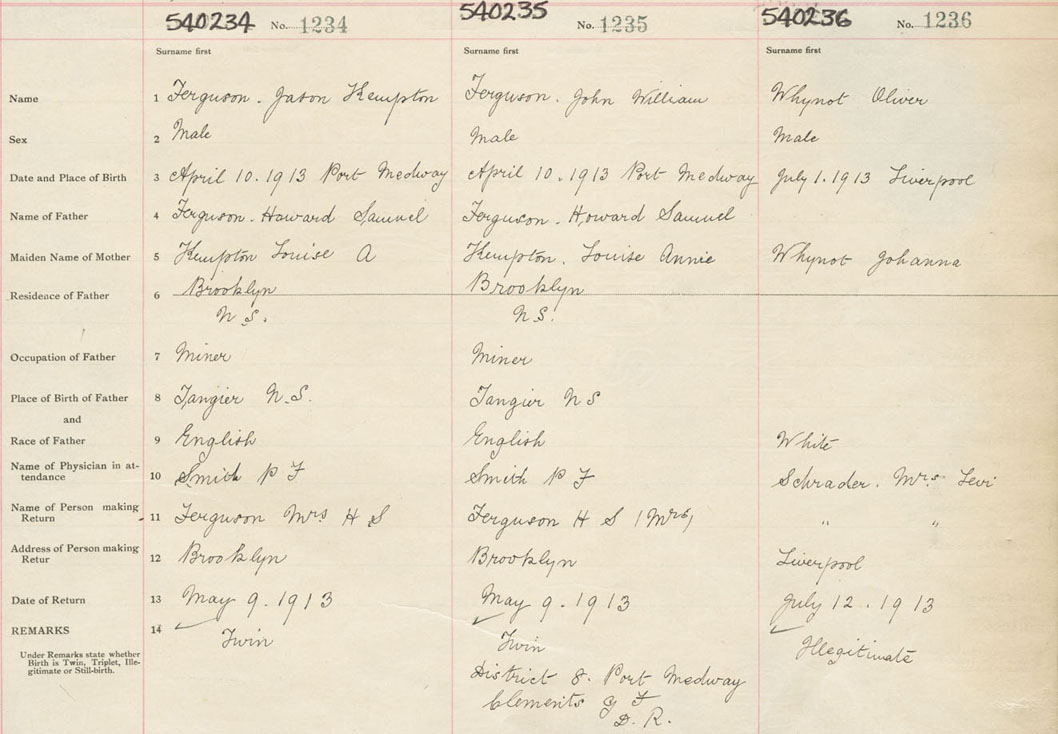 540234 No. 1234 540235 No. 1235 540236 No. 1236
Surname first Surname first Surname first
Name 1 Ferguson. Jason Kempton Ferguson. John William Whynot Oliver
Sex 2 Male Male Male
Date and Place of Birth 3 April 10. 1913 Port Medway April 10. 1913 Port Medway July 1. 1913 Liverpool
Name of Father 4 Ferguson. Howard Samuel Ferguson. Howard Samuel
Maiden Name of Mother 5 Kempton Louise A Kempton. Louise Annie Whynot Johanna
Residence of Father 6 Brooklyn Brooklyn
N.S. N.S.
Occupation of Father 7 Miner Miner
Place of Birth of Father 8 Tangier N.S. Tangier N S
and
Race of Father 9 English English White
Name of Physician in at-
tendance 10 Smith P F Smith P F Schrader. Mrs Levi
Name of Person making
Return 11 Ferguson Mrs H S Ferguson H S (Mrs) " "
Address of Person making
Retur 12 Brooklyn Brooklyn Liverpool
Date of Return 13 May 9. 1913 May 9. 1913 July 12. 1913
REMARKS 14 Twin Twin Illegitimate
Under Remarks state whether
Birth is Twin, Triplet, Ille-
gitimate or Still-birth.
District 8. Port Medway
Clements G F
D. R.